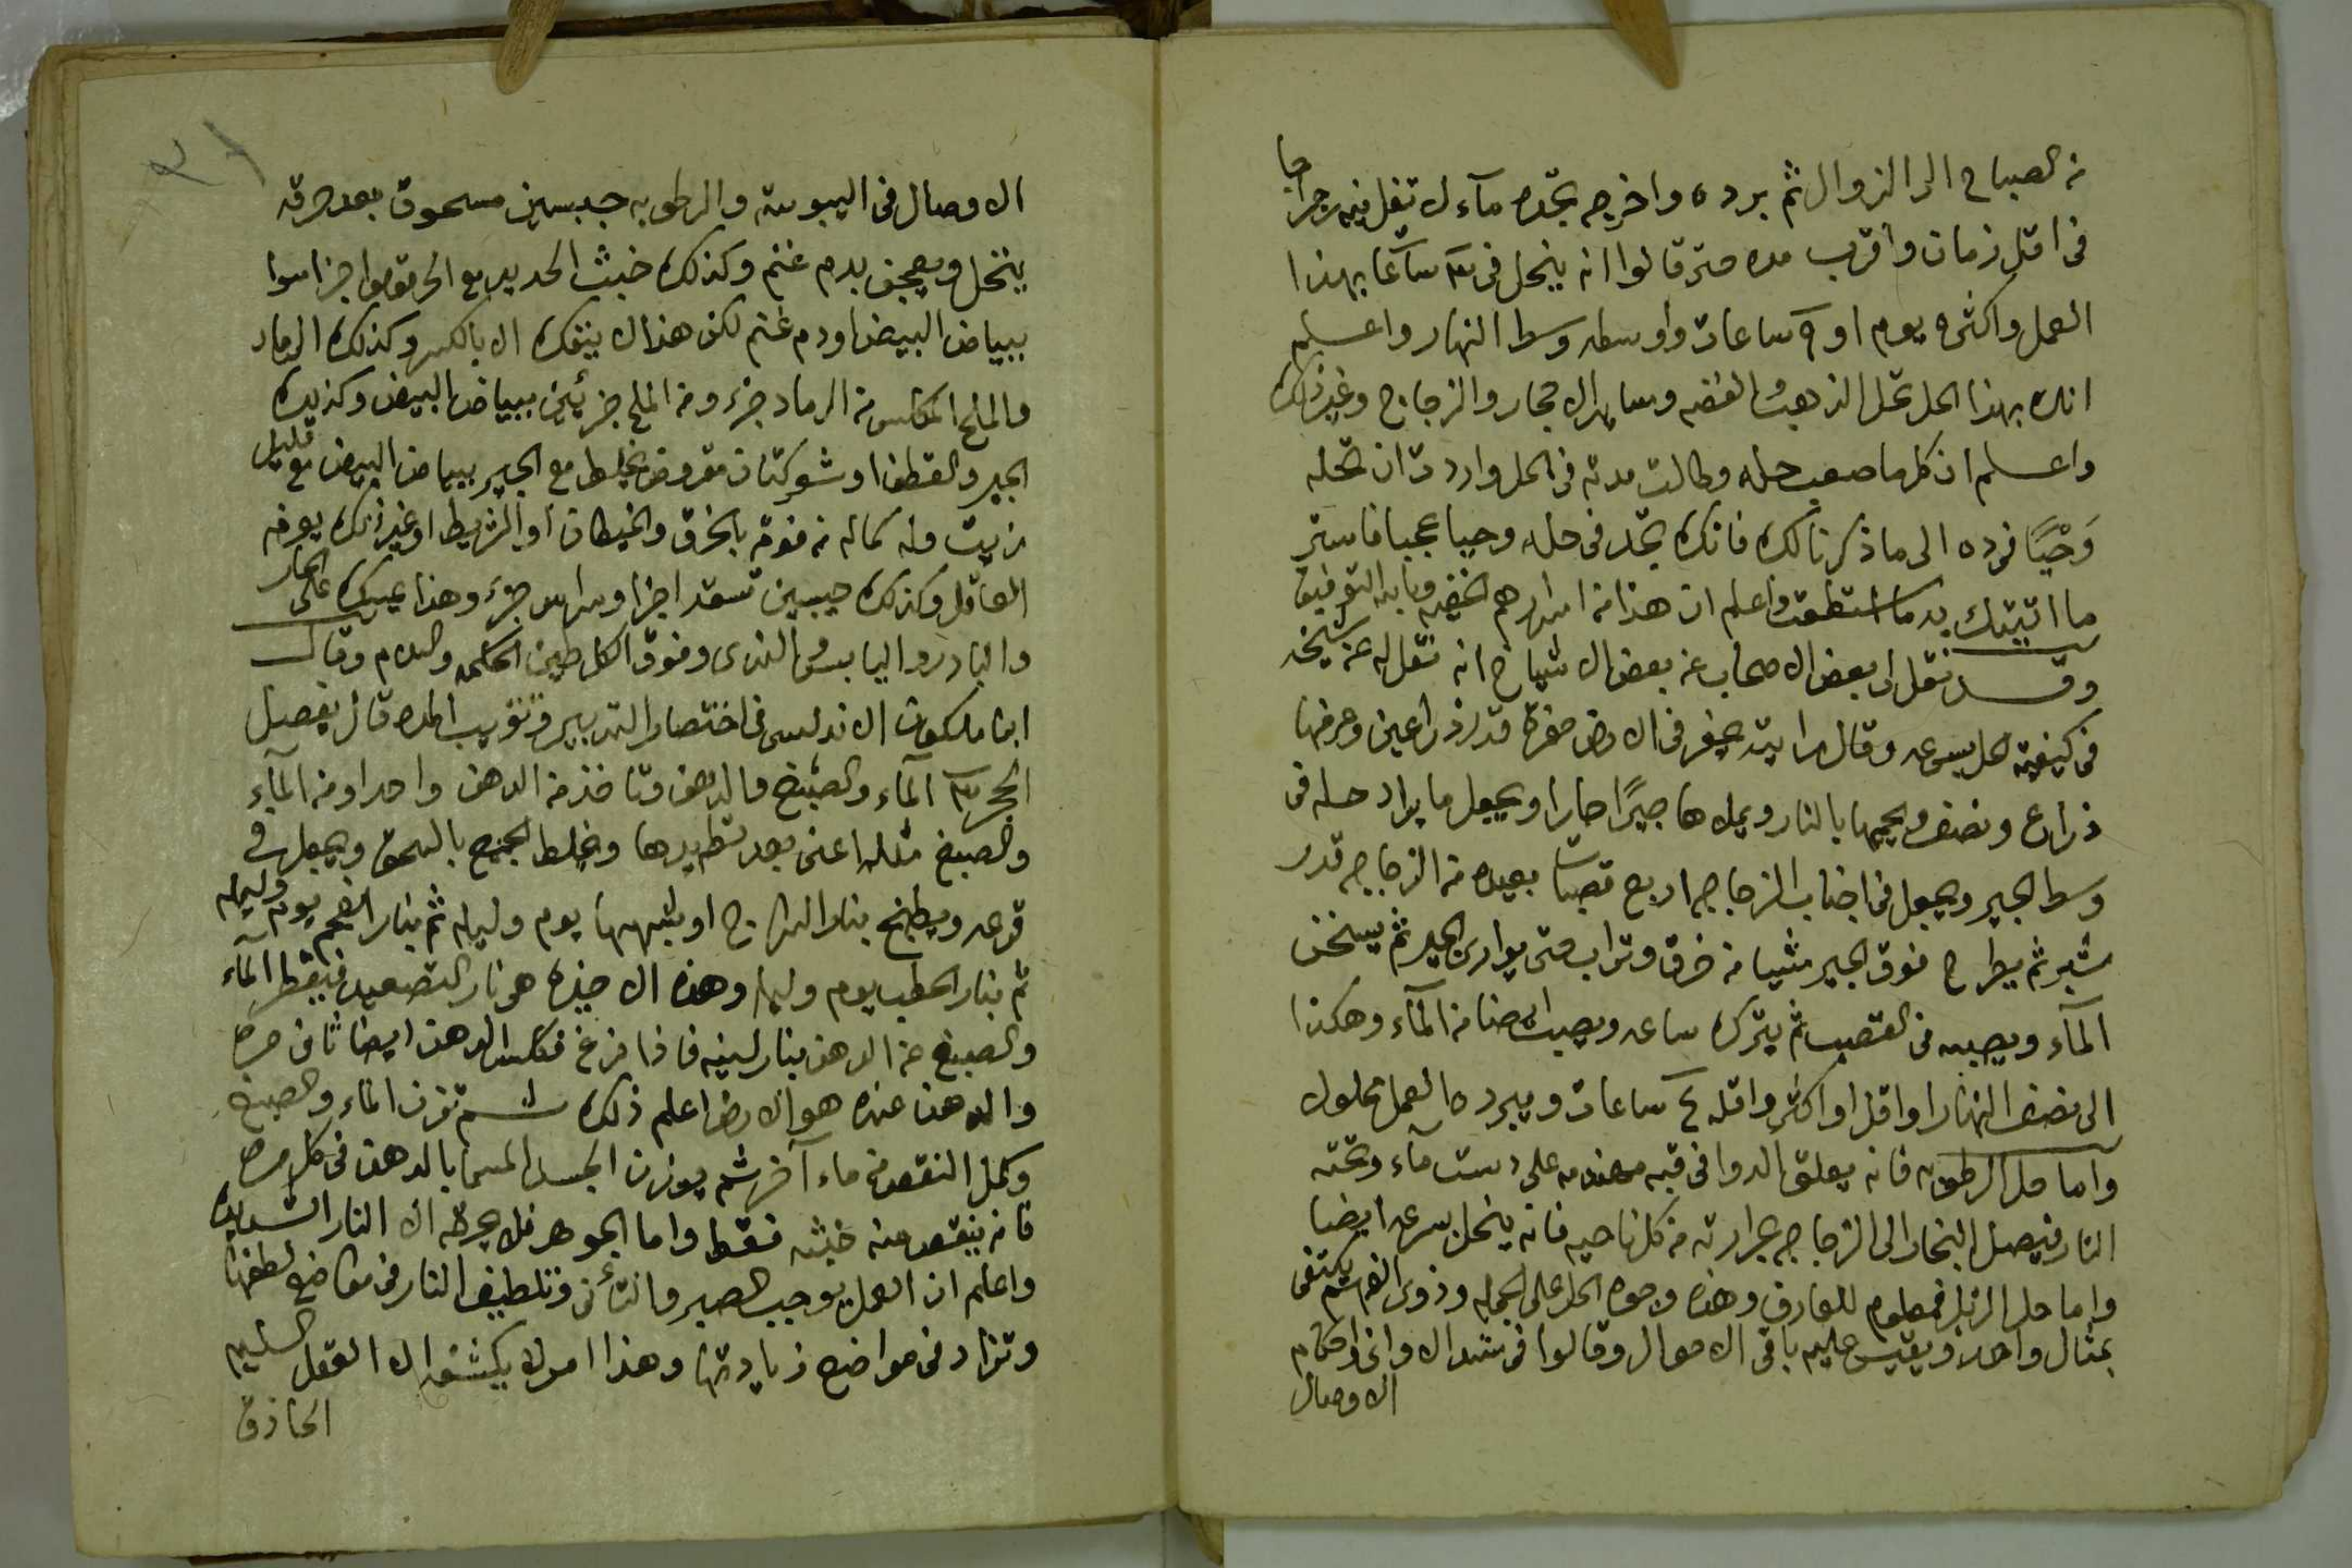 من الصباح الى الزوال ثم برده واخرجه تجده مآء لا تفل فيه رجراجا
فى اقل زمان واقرب مده حتى قالوا انه ينحل فى ٣ ساعات بهذا
العمل واكثره يوم او ٩ ساعات واوسطه وسط النهار واعلم
انك بهذا الحل تحل الذهب والفضه وساير الاحجار والزجاج وغير ذلك
واعلم ان كل ما صعب حله وطالت مدته فى الحل واردت ان تحله
وَحْيًا فرده الى ما ذكرنا لك فانك تجد فى حله وحيا عجبا فاستر
ما اتيتك به ما استطعت واعلم ان هذا من اسرارهم الخفيه وبالله التوفيق
وقد نقل لى بعض الاصحاب عن بعض الاشياخ انه نقل له عن شيخه
فى كيفية الحل بسرعه وقال رايته يحفر فى الارض حفرة قدر ذراعين وعرضها
ذراع ونصف ويحميها بالنار ويملاها جيرًا حارا ويجعل ما يراد حله فى
وسط الجير ويجعل فى اجناب الزجاجه اربع قصبات بعيده من الزجاجه قدر
شبر ثم يطرح فوق الجير شيا من خرق وتراب حتى يوارى الجير ثم يسخن
المآء ويصبه فى القصب ثم يترك ساعه ويصب ايضا من المآء وهكذا
الى نصف النهار او اقل او اكثر واقله ٤ ساعات ويبرده العمل محلول
واما حل الرطوبه فانه يعلق الدوا فى قبه مهندمه على دست مآء وتحته
النار فيصل البخار الى الزجاجه بحرارته من كل ناحيه فانه ينحل بسرعه ايضا
واما حل الزبل فمعلوم للعارف وهذه وجوه الحل على الجمله وذوى الفهم يكتفى
بمثال واحد ويقيس عليه باقى الاحوال وقالوا فى شد الاوانى واحكام
الاوصال
الاوصال فى اليبوسة والرطوبه جبسين مسحوق بعد حرقه
ينخل ويعجن بدم غنم وكذلك خبث الحديد مع الخرقوص اجزا سوا
ببياض البيض او دم غنم لكن هذا لا ينفك الا بالكسر وكذلك الرماد
والملح المكلس من الرماد جزء ومن الملح جزئين ببياض البيض وكذلك
الجير والقطن او شعر كتان مقروض يخلط مع الجير ببياض البيض مع قليل
زيت وله كماله من فوقه بالخرق والخيطان او الشريط او غير ذلك يعرفه
العاقل وكذلك جبسين تسعه اجزا وسراس جزء وهذا يمسك على الحار
والبارد واليابس والندى وفوق الكل طين الحكمه والسلام وقال
ابن ملكون الاندلسى فى اختصار التدبير وتقريب المده قال يفصل
الحجر ٣ المآء والصبغ والدهن وتاخذ من الدهن واحد ومن المآء
والصبغ مثله اعنى بعد تطهيرها ويخلط الجميع بالسحق ويجعل فى
قرعه ويطبخ بنار السراج او يشبهها يوم وليله ثم بنار الفحم يوم وليله
ثم بنار الحطب يوم وليله وهذه الاخيره هى نار التصعيد فيقطر المآء
والصبغ عن الدهن بنار لينه فاذا فرغ فكلس الدهن ايضا ثانى مره
والدهن عنده هو الارض اعلم ذلك ثم تزن المآء والصبغ
وكمل النقص من ماء آخر ثم يوزن الجسد المسما بالدهن فى كل مره
فانه ينقص منه خبثه فقط واما الجوهر فلا يحرقه الا النار الشديده
واعلم ان العمل يوجب الصبر والتأنى وتلطيف النار فى مواضع لطفها
وتزاد فى مواضع زيادتها وهذا امر لا يكشفه الا العقل السليم
الحاذق